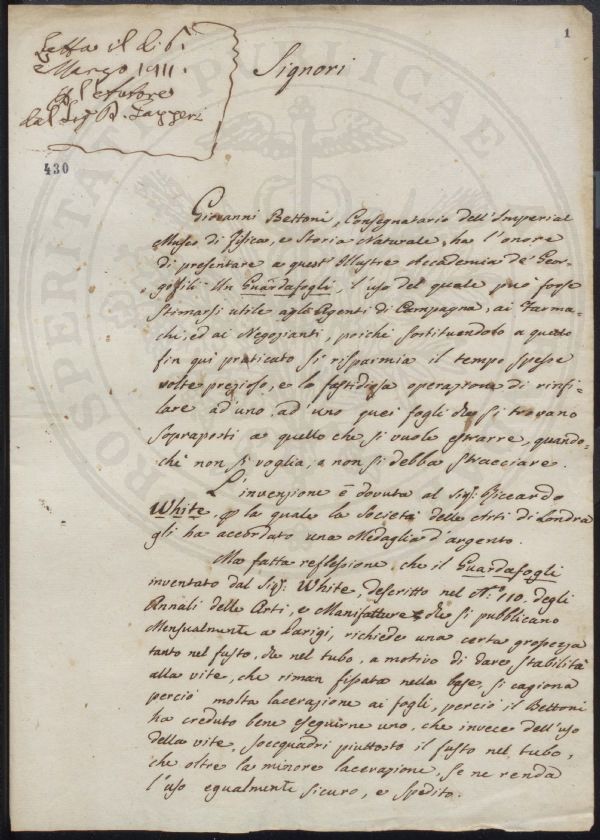 1
Letta il dì 6.
Marzo 1811.
p l'autore
dal Sig. D. Lazzeri
430
Signori
Giovanni Bettoni, Consegnatario dell'Imperial
Museo di Fisica, e Storia Naturale, ha l'onore
di presentare a quest'Illustre Accademia de' Geor-
gofili Un Guardafogli, l'uso del quale può forse
stimarsi utile agli Agenti di Campagna, ai Farma-
chi, ed ai Negozianti, poichè sostituendolo a quello
fin qui praticato si risparmia il tempo spesse
volte prezioso, e la fastidiosa operazione di rinfi-
lare ad'uno, ad'uno quei fogli che si trovano
sopraposti a quello che si vuole estrarre, quando-
chè non si voglia, o non si debba stracciare.
L'invenzione è dovuta al Sig. Riccardo
White, p la quale la Società delle Arti di Londra
gli ha accordato una Medaglia d'argento.
Ma fatta reflessione, che il Guardafogli
inventato dal Sig. White, descritto nel N.° 110. degli
Annali delle Arti, e Manifatture che si pubblicano
Mensualmente a Parigi, richiede una certa grossezza
tanto nel fusto, che nel tubo, a motivo di dare stabilità
alla vite, che riman fissata nella base, si cagiona
perciò molta lacerazione ai fogli, perciò il Bettoni
ha creduto bene eseguirne uno, che invece dell'uso
della vite, socquadri piuttosto il fusto nel tubo,
che oltre la minore lacerazione, se ne renda
l'uso egualmente sicuro, e spedito.